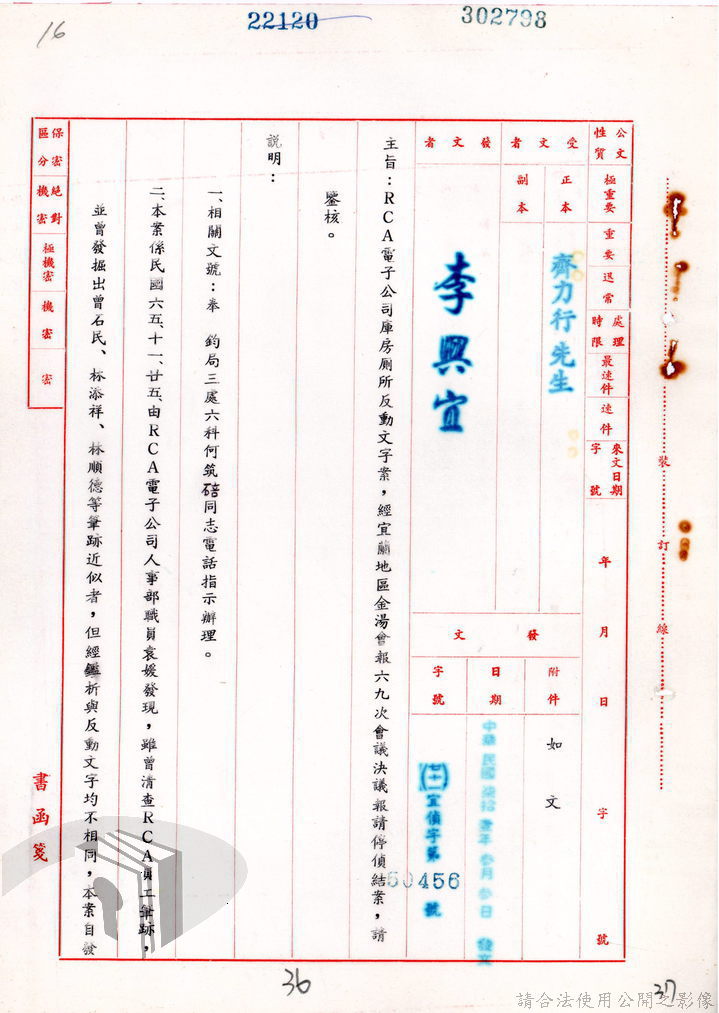 16
22120
302798
公文性質
極重要
重要
退常
處理時限
最速件
速件
來文日期字號
年
月
日
字
號
受文者
正本
副本
齊力行先生
發文者
李興宜
發文
附件
如文
日期
中華民國柒拾壹年參月參日發文
字號
(七十一)宜偵字第
50456
號
主旨:RCA電子公司庫房厠所反動文字案,經宜蘭地區金湯會報六九次會議決議報請停偵結案,請
鑒核。
說明:
一、相關文號:奉 鈞局三處六科何筑碚同志電話指示辦理。
二、本案係民國六五、十一、廿五、由RCA電子公司人事部職員袁媛發現,雖曾清查RCA員工筆跡,
並曾發掘出曾石民、林添祥、林順德等筆跡近似者,但經鑑析與反動文字均不相同,本案自發
保密區分
絕對機密
極機密
機密
密
書函箋
裝
訂
線
36
37
請合法使用公開之影像